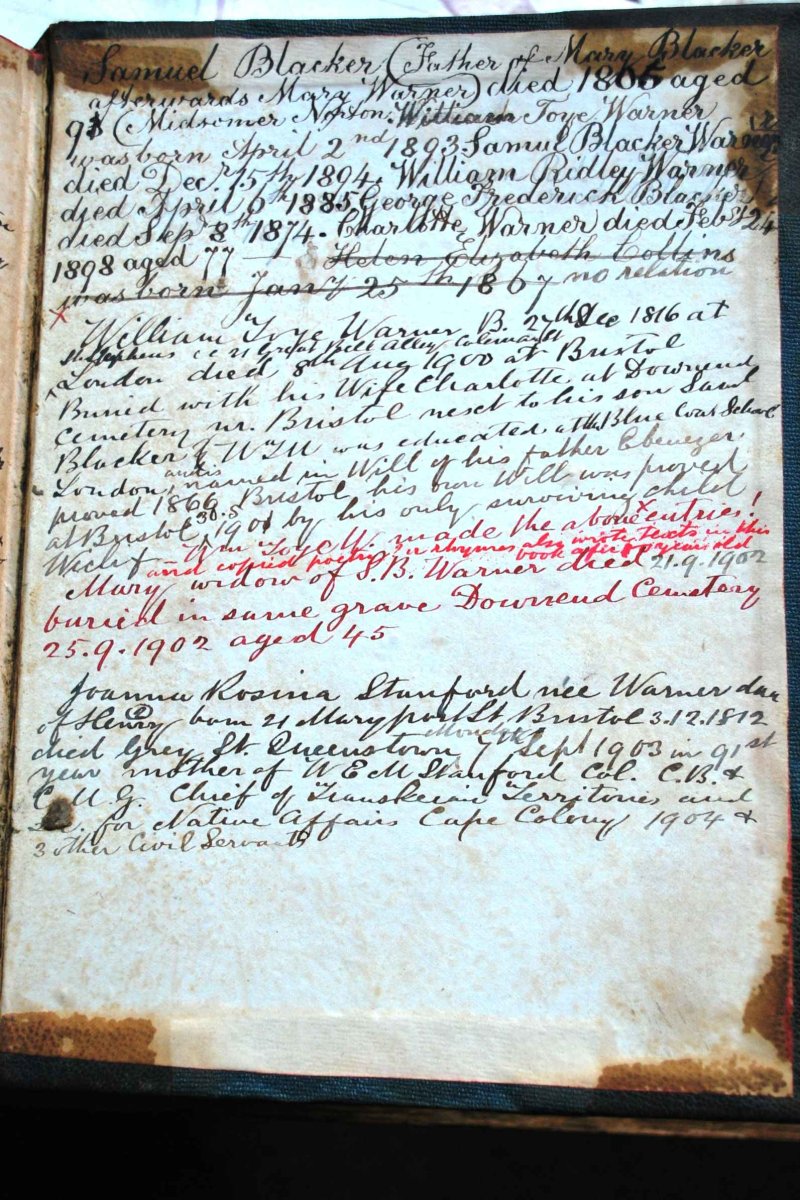 Samuel Blacker (Father of Mary Blacker
afterwards Mary Warner) died 1865 aged
91 (Midsomer Norton. William Toye Warner
was born April 2nd 1893 Samuel Blacker Warner
died Decr. 15th 1894. William Ridley Warner
died April 6th 1885 George Frederick Blacker
died Sepr 8th 1874. Charlotte Warner died Feby 24
1898 aged 77 — Helen Elizabeth Collins
was born Jany 25th 1867 no relation
x William Toye Warner B. 27th Dec 1816 at
St Stephens 21 Great Bell Alley Colemanst
London died 8th Aug 1900 at Bristol
Buried with his Wife Charlotte at Downend
Cemetery nr. Bristol next to his son Saml
Blacker W was educated at the Blue Coat School
London, and is named in Will of his father Ebenezer
proved 1866 Bristol, his own Will was proved
at Bristol 30.5 1901 by his only surviving child
Wm Toye W. made the above entries!
and copied poetry in rhymes also wrote texts in this
book after 80 years old
Mary widow of S.B. Warner died 21.9.1902
buried in same grave Downend Cemetery
25.9.1902 aged 45
Joanna Rosina Stanford née Warner dau
of Henry born 21 Maryport St, Bristol 3.12.1812
died Grey St. Queenstown Monday 7th Sept 1903 in 91st
year mother of W E M Stanford Col. C.B. &
C.M.G. Chief of Transkeian Territories and
for Native Affairs Cape Colony 1904 &
3 other Civil Servants